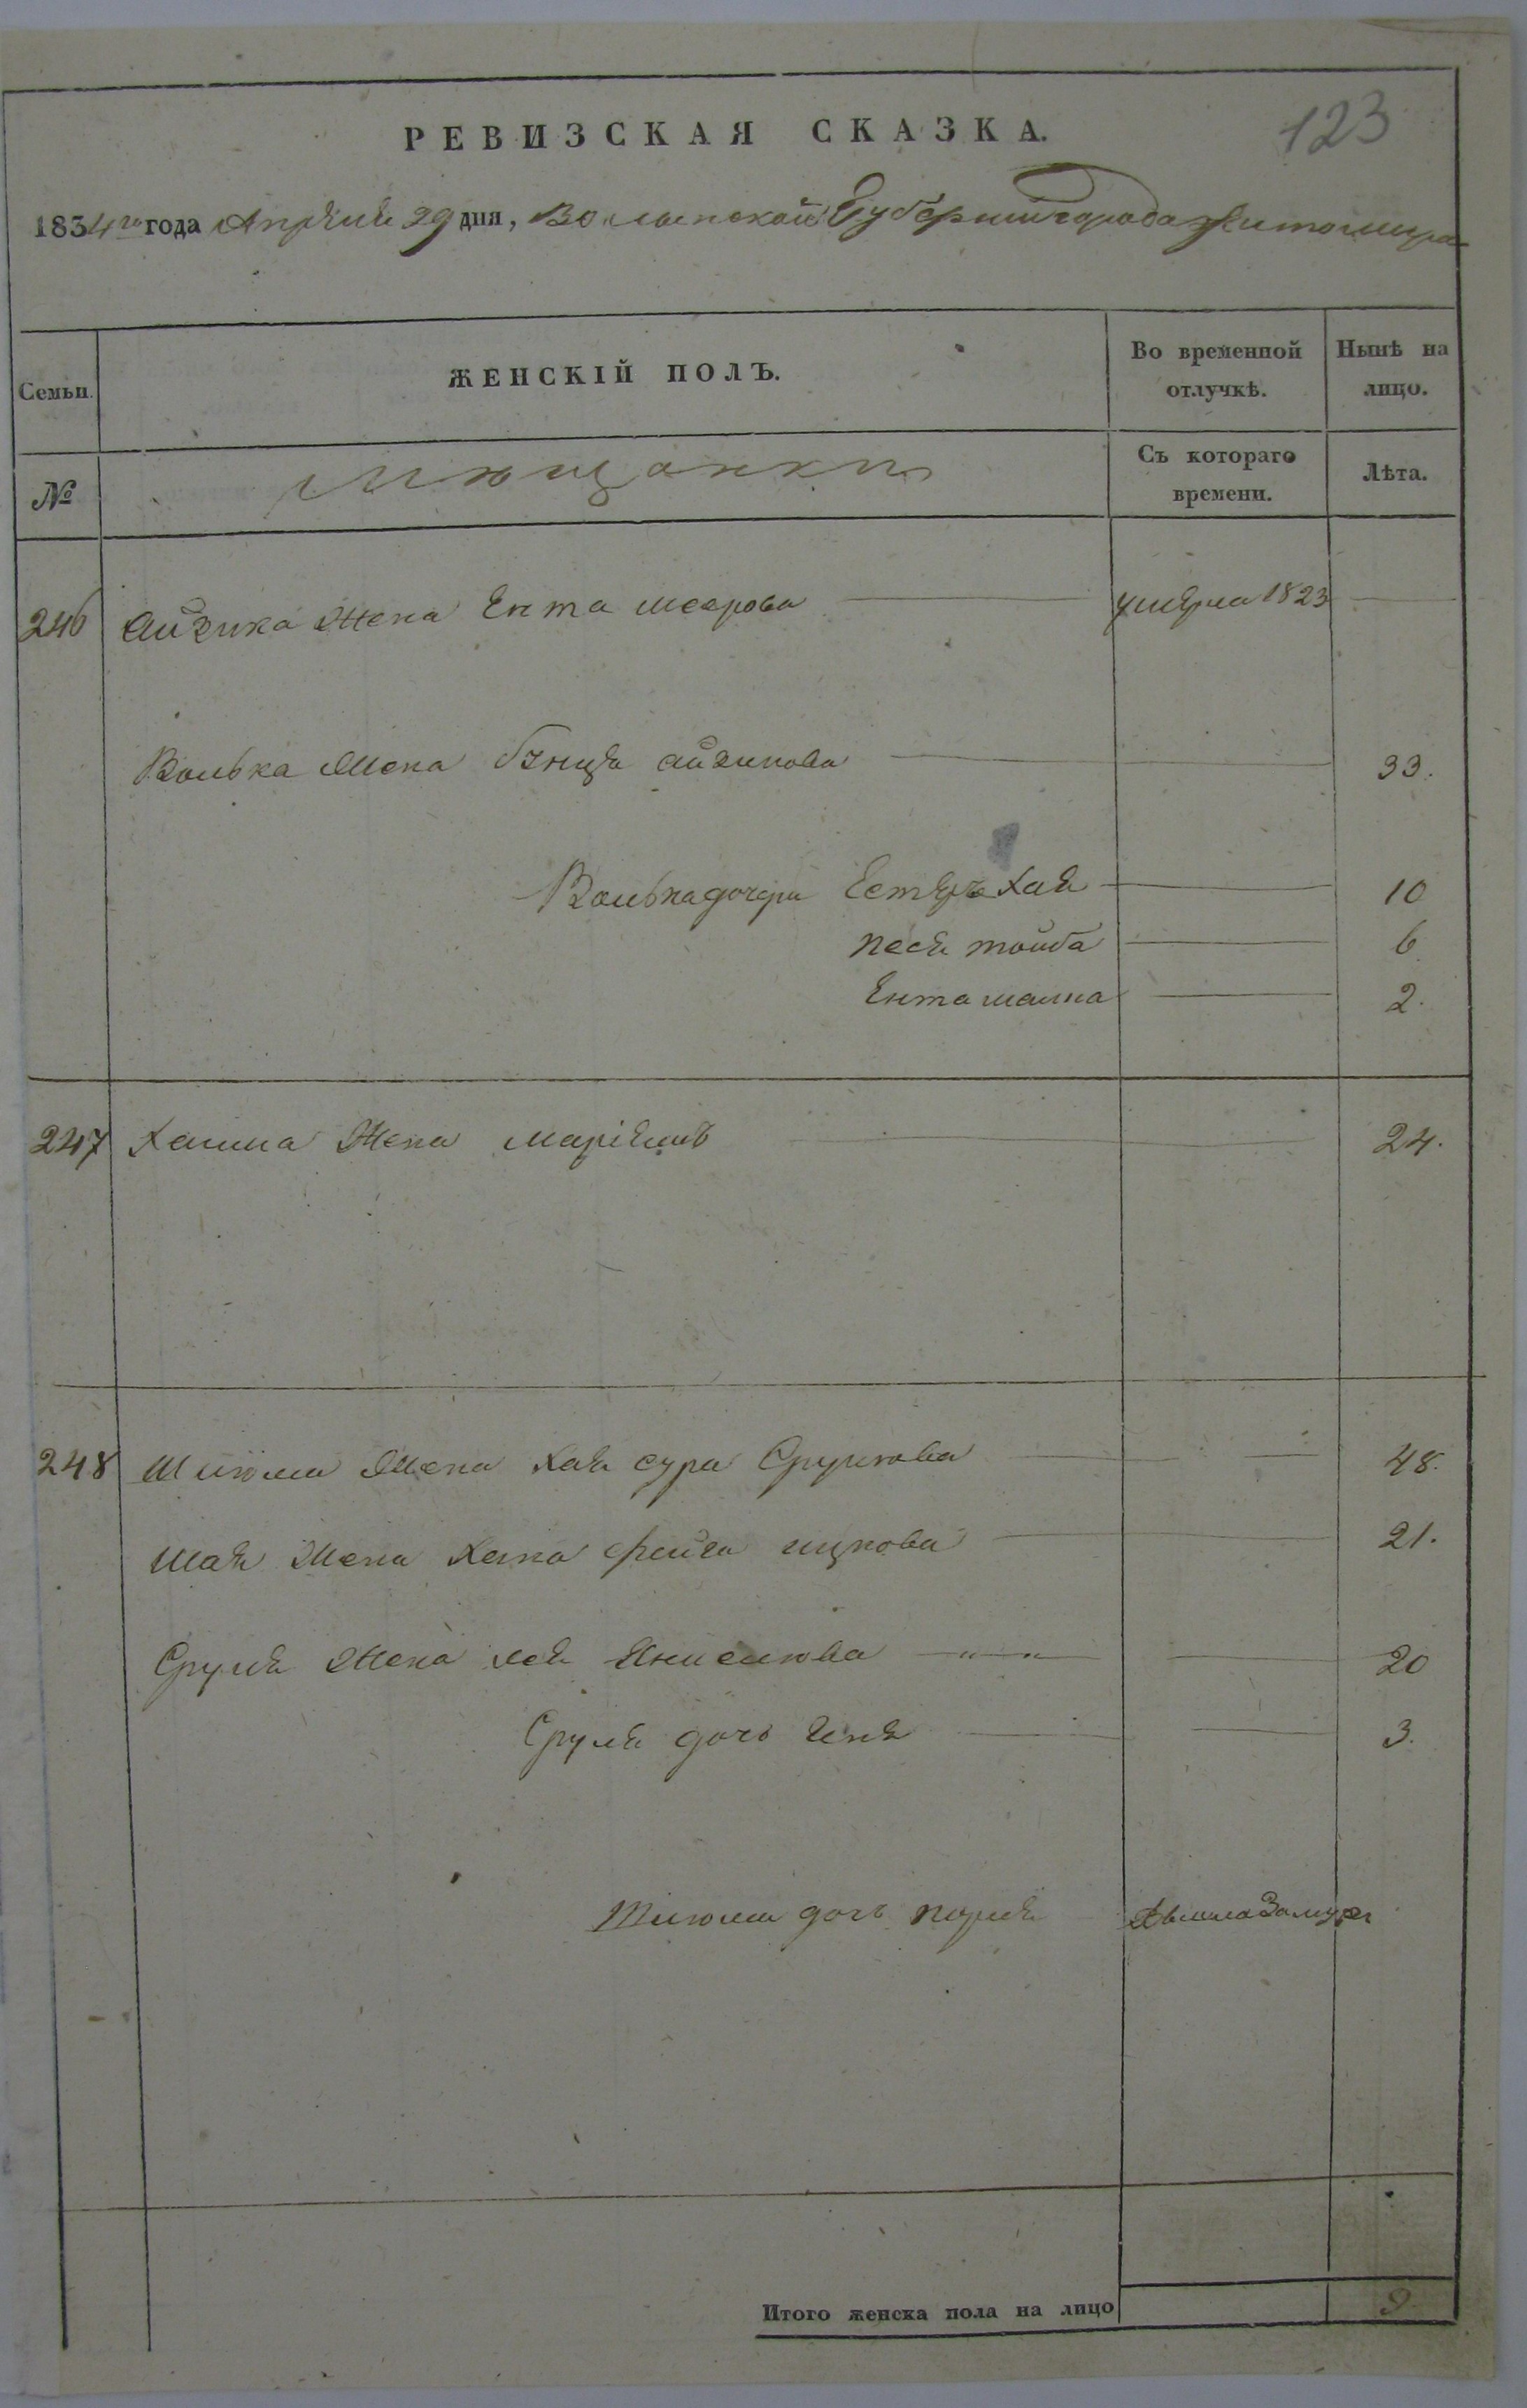 123
РЕВИЗСКАЯ СКАЗКА.
1834го года Апреля 29 дня, Волынской Губернии города Житомира
Семьи.
ЖЕНСКІЙ ПОЛЪ.
Во временной отлучкѣ.
Нынѣ на лицо.
№
Мющанки
Съ котораго времени.
Лѣта.
246 Айзика Жена Ента Меерова умерла 1823
Волька Жена Айзикова 33.
Волька дочери Естеръ Хая 10
Песя Тойба 6
Ента Малка 2.
247 Хаима Жена Маріямъ 24.
248 Шлюма Жена Хая Сура Срулюва 48.
Шая Жена Хана Фейга Ицкова 21.
Сруля Жена Лея 20
Сруля дочь Геня 3.
Шлюма дочь Перля Вышла Замуж
Итого женска пола на лицо 9